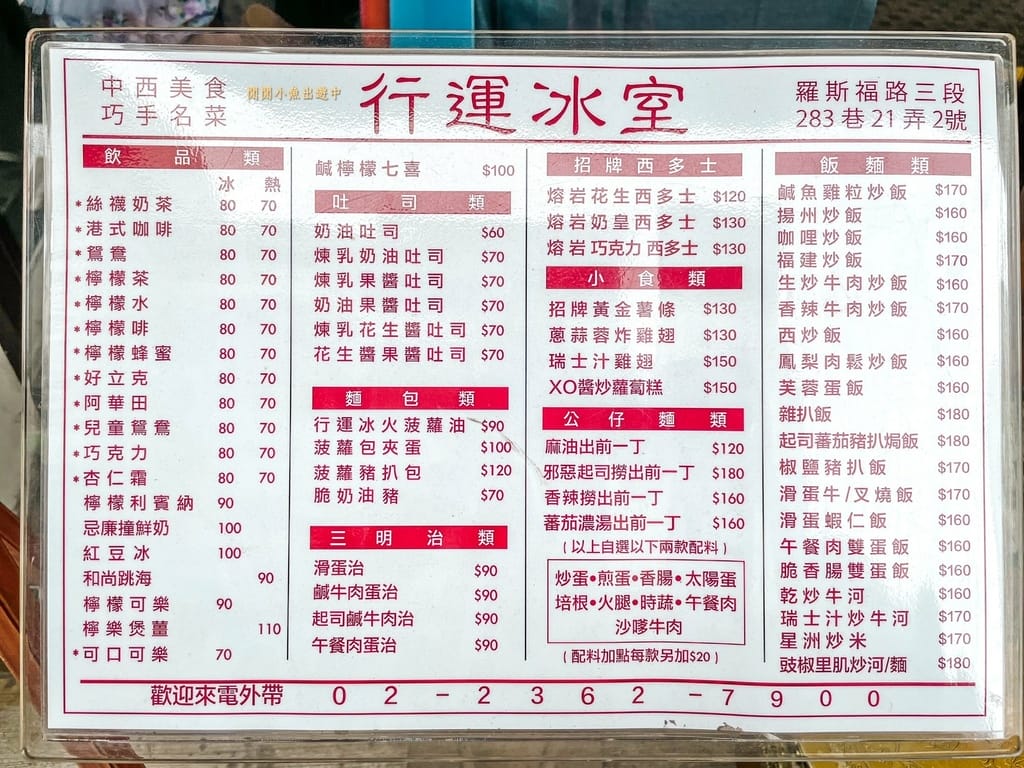 中西美食
巧手名菜
閒閒小魚出遊中
行運冰室
羅斯福路三段
283巷21弄2號
飲品類
冰 熱
*絲襪奶茶 80 70
*港式咖啡 80 70
*鴛鴦 80 70
*檸檬茶 80 70
*檸檬水 80 70
*檸檬啡 80 70
*檸檬蜂蜜 80 70
*好立克 80 70
*阿華田 80 70
*兒童鴛鴦 80 70
*巧克力 80 70
*杏仁霜 80 70
檸檬利賓納 90
忌廉撞鮮奶 100
紅豆冰 100
和尚跳海 90
檸檬可樂 90
檸樂煲薑 110
*可口可樂 70
鹹檸檬七喜 $100
吐司類
奶油吐司 $60
煉乳奶油吐司 $70
煉乳果醬吐司 $70
奶油果醬吐司 $70
煉乳花生醬吐司 $70
花生醬果醬吐司 $70
麵包類
行運冰火菠蘿油 $90
菠蘿包夾蛋 $100
菠蘿豬扒包 $120
脆奶油豬 $70
三明治類
滑蛋治 $90
鹹牛肉蛋治 $90
起司鹹牛肉治 $90
午餐肉蛋治 $90
招牌西多士
熔岩花生西多士 $120
熔岩奶皇西多士 $130
熔岩巧克力西多士 $130
小食類
招牌黃金薯條 $130
蔥蒜蓉炸雞翅 $130
瑞士汁雞翅 $150
XO醬炒蘿蔔糕 $150
公仔麵類
麻油出前一丁 $120
邪惡起司撈出前一丁 $180
香辣撈出前一丁 $160
蕃茄濃湯出前一丁 $160
(以上自選以下兩款配料)
炒蛋•煎蛋•香腸•太陽蛋
培根•火腿•時蔬•午餐肉
沙嗲牛肉
(配料加點每款另加$20)
飯麵類
鹹魚雞粒炒飯 $170
揚州炒飯 $160
咖哩炒飯 $160
福建炒飯 $170
生炒牛肉炒飯 $160
香辣牛肉炒飯 $170
西炒飯 $160
鳳梨肉鬆炒飯 $160
芙蓉蛋飯 $160
雜扒飯 $180
起司蕃茄豬扒焗飯 $180
椒鹽豬扒飯 $170
滑蛋牛/叉燒飯 $170
滑蛋蝦仁飯 $160
午餐肉雙蛋飯 $160
脆香腸雙蛋飯 $160
乾炒牛河 $160
瑞士汁炒牛河 $170
星洲炒米 $170
豉椒里肌炒河/麵 $180
歡迎來電外帶 02-2362-7900